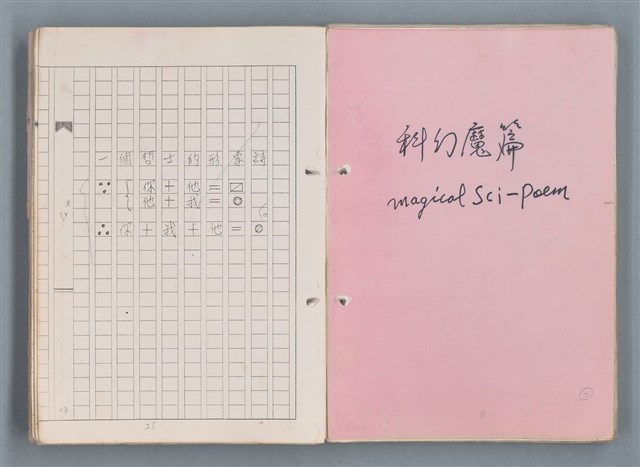 一個哲士的形象詩
∵ { 你 + 他 = ⧄
{ 他 + 我 = ⊙
∴ 你 + 我 + 他 = ⊙
科幻魔篇
magical Sci-Poem